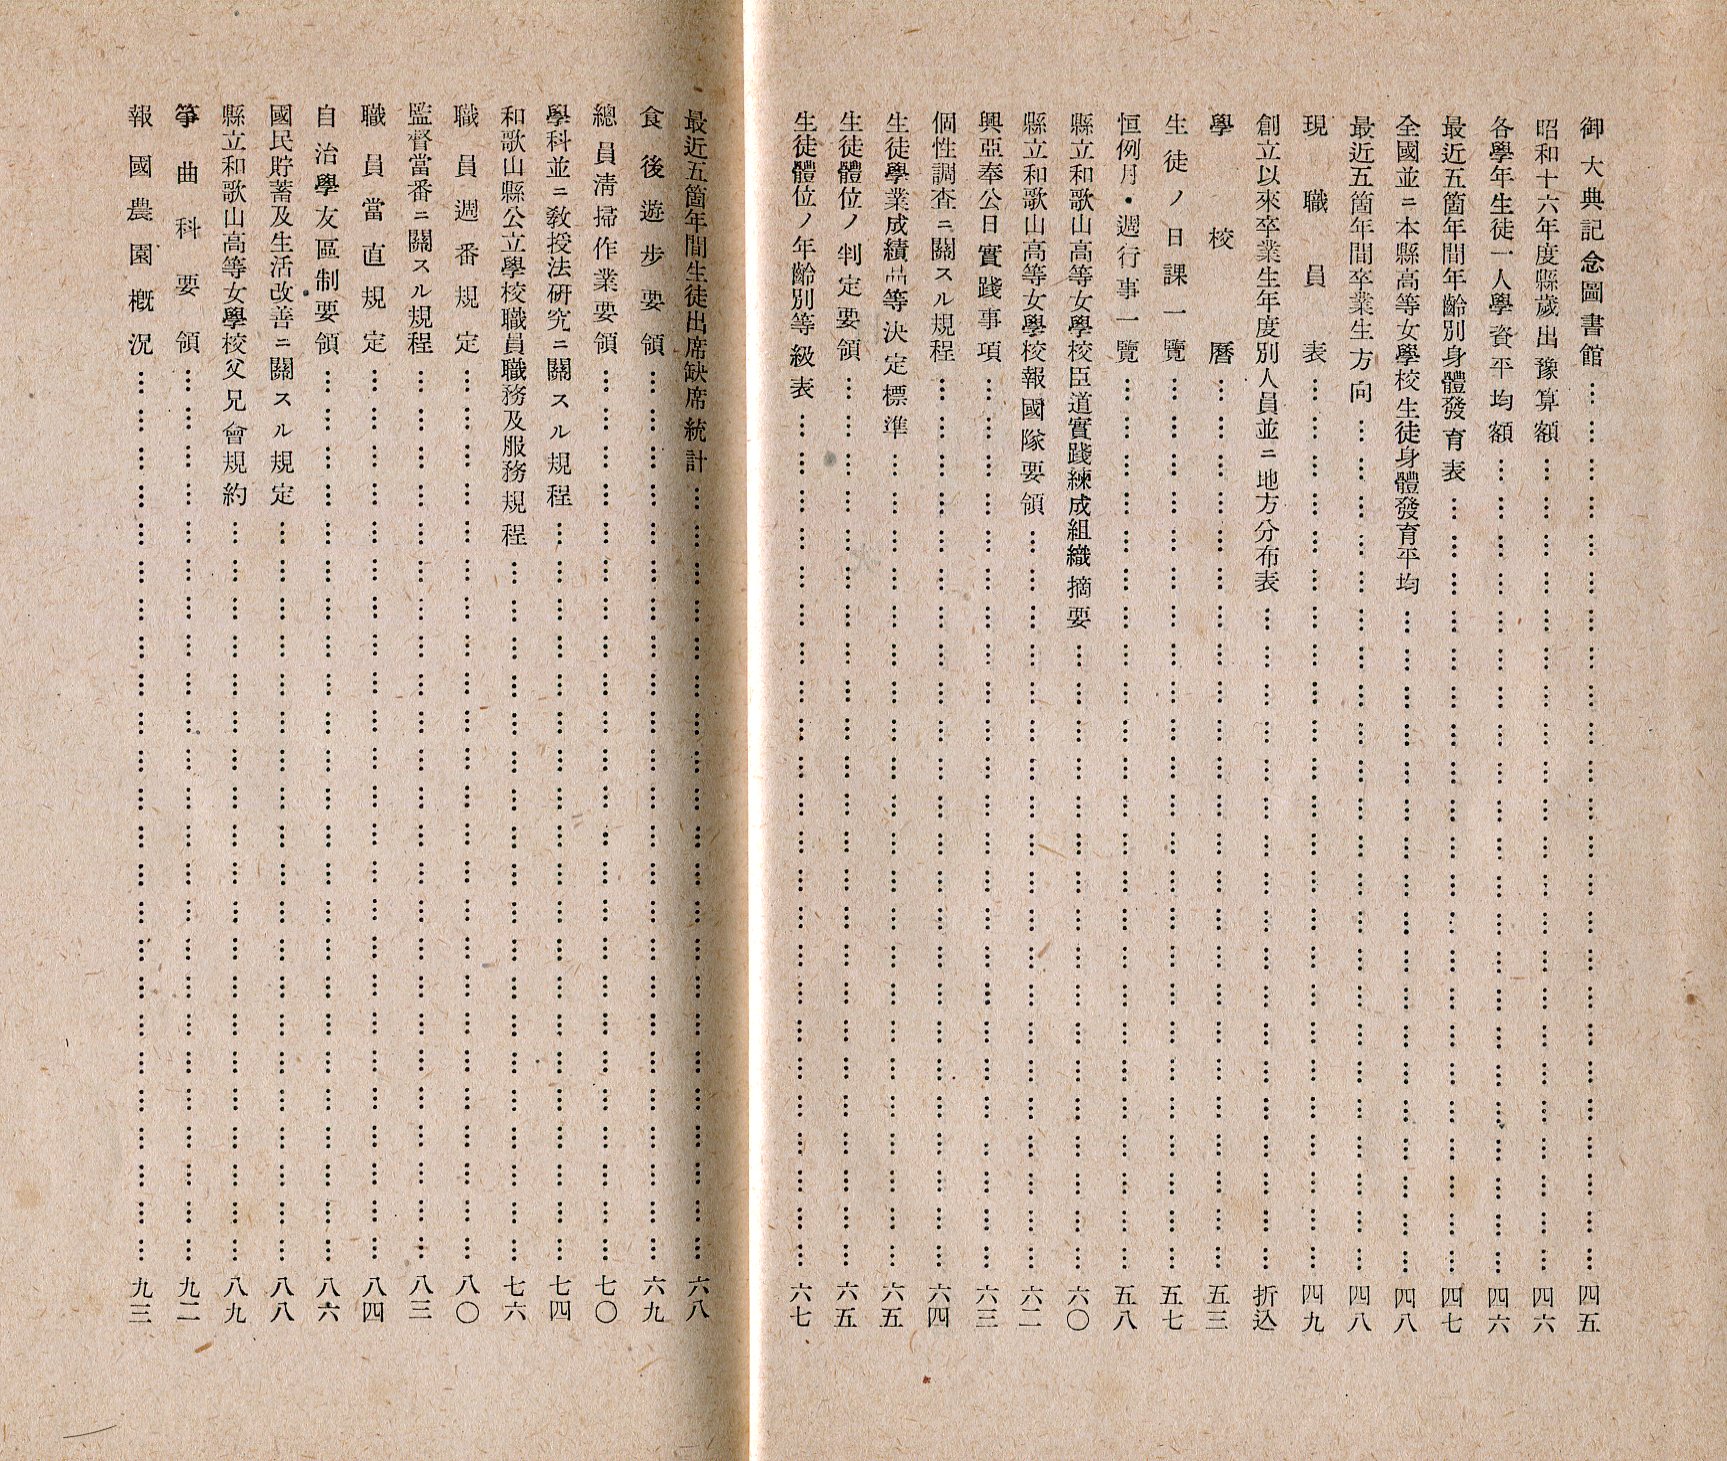 御大典記念圖書館……四五
昭和十六年度縣歲出豫算額……四六
各學年生徒一人學資平均額……四六
最近五箇年間年齡別身體發育表……四七
全國並ニ本縣高等女學校生徒身體發育平均……四八
最近五箇年間卒業生方向……四八
現職員表……四九
創立以來卒業生年度別人員並ニ地方分布表……折込
學校曆……五三
生徒ノ日課一覽……五七
恒例月・週行事一覽……五八
縣立和歌山高等女學校臣道實踐練成組織摘要……六〇
縣立和歌山高等女學校報國隊要領……六二
興亞奉公日實踐事項……六三
個性調査ニ關スル規程……六四
生徒學業成績品等決定標準……六五
生徒體位ノ判定要領……六五
生徒體位ノ年齡別等級表……六七
最近五箇年間生徒出席缺席統計……六八
食後遊步要領……六九
總員淸掃作業要領……七〇
學科並ニ敎授法硏究ニ關スル規程……七四
和歌山縣公立學校職員職務及服務規程……七六
職員週番規定……八〇
監督當番ニ關スル規程……八三
職員當直規定……八四
自治學友區制要領……八六
國民貯蓄及生活改善ニ關スル規定……八八
縣立和歌山高等女學校父兄會規約……八九
箏曲科要領……九二
報國農園槪況……九三